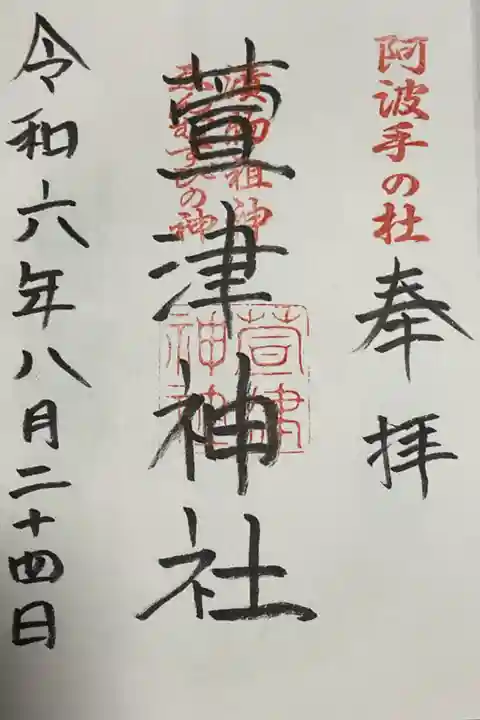 阿波手の杜
奉拝
漬物祖神
むすびの神
萱津神社
萱津
神社
令和六年八月二十四日